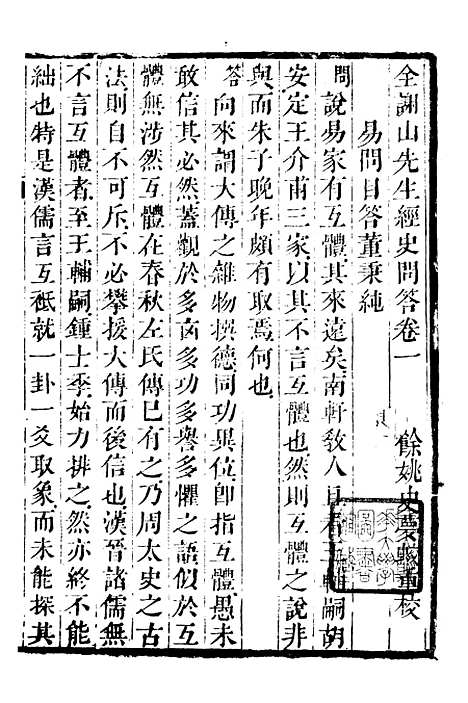 全謝山先生經史問答卷一
餘姚史夢蛟重校
易問目答董秉純
問說易家有互體其來遠矣南軒教人且看王輔嗣胡
安定王介甫三家以其不言互體也然則互體之說非
與而朱子晚年頗有取焉何也
答向來謂大傳之雜物撰德同功異位卽指互體愚未
敢信其必然蓋觀於多凶多功多譽多懼之語似於互
體無涉然互體在春秋左氏傳巳有之乃周太史之古
法則自不可斥不必攀援大傳而後信也漢晉諸儒無
不言互體者至王輔嗣鍾士季始力排之然亦終不能
絀也特是漢儒言互祗就一卦一爻取象而未能探其